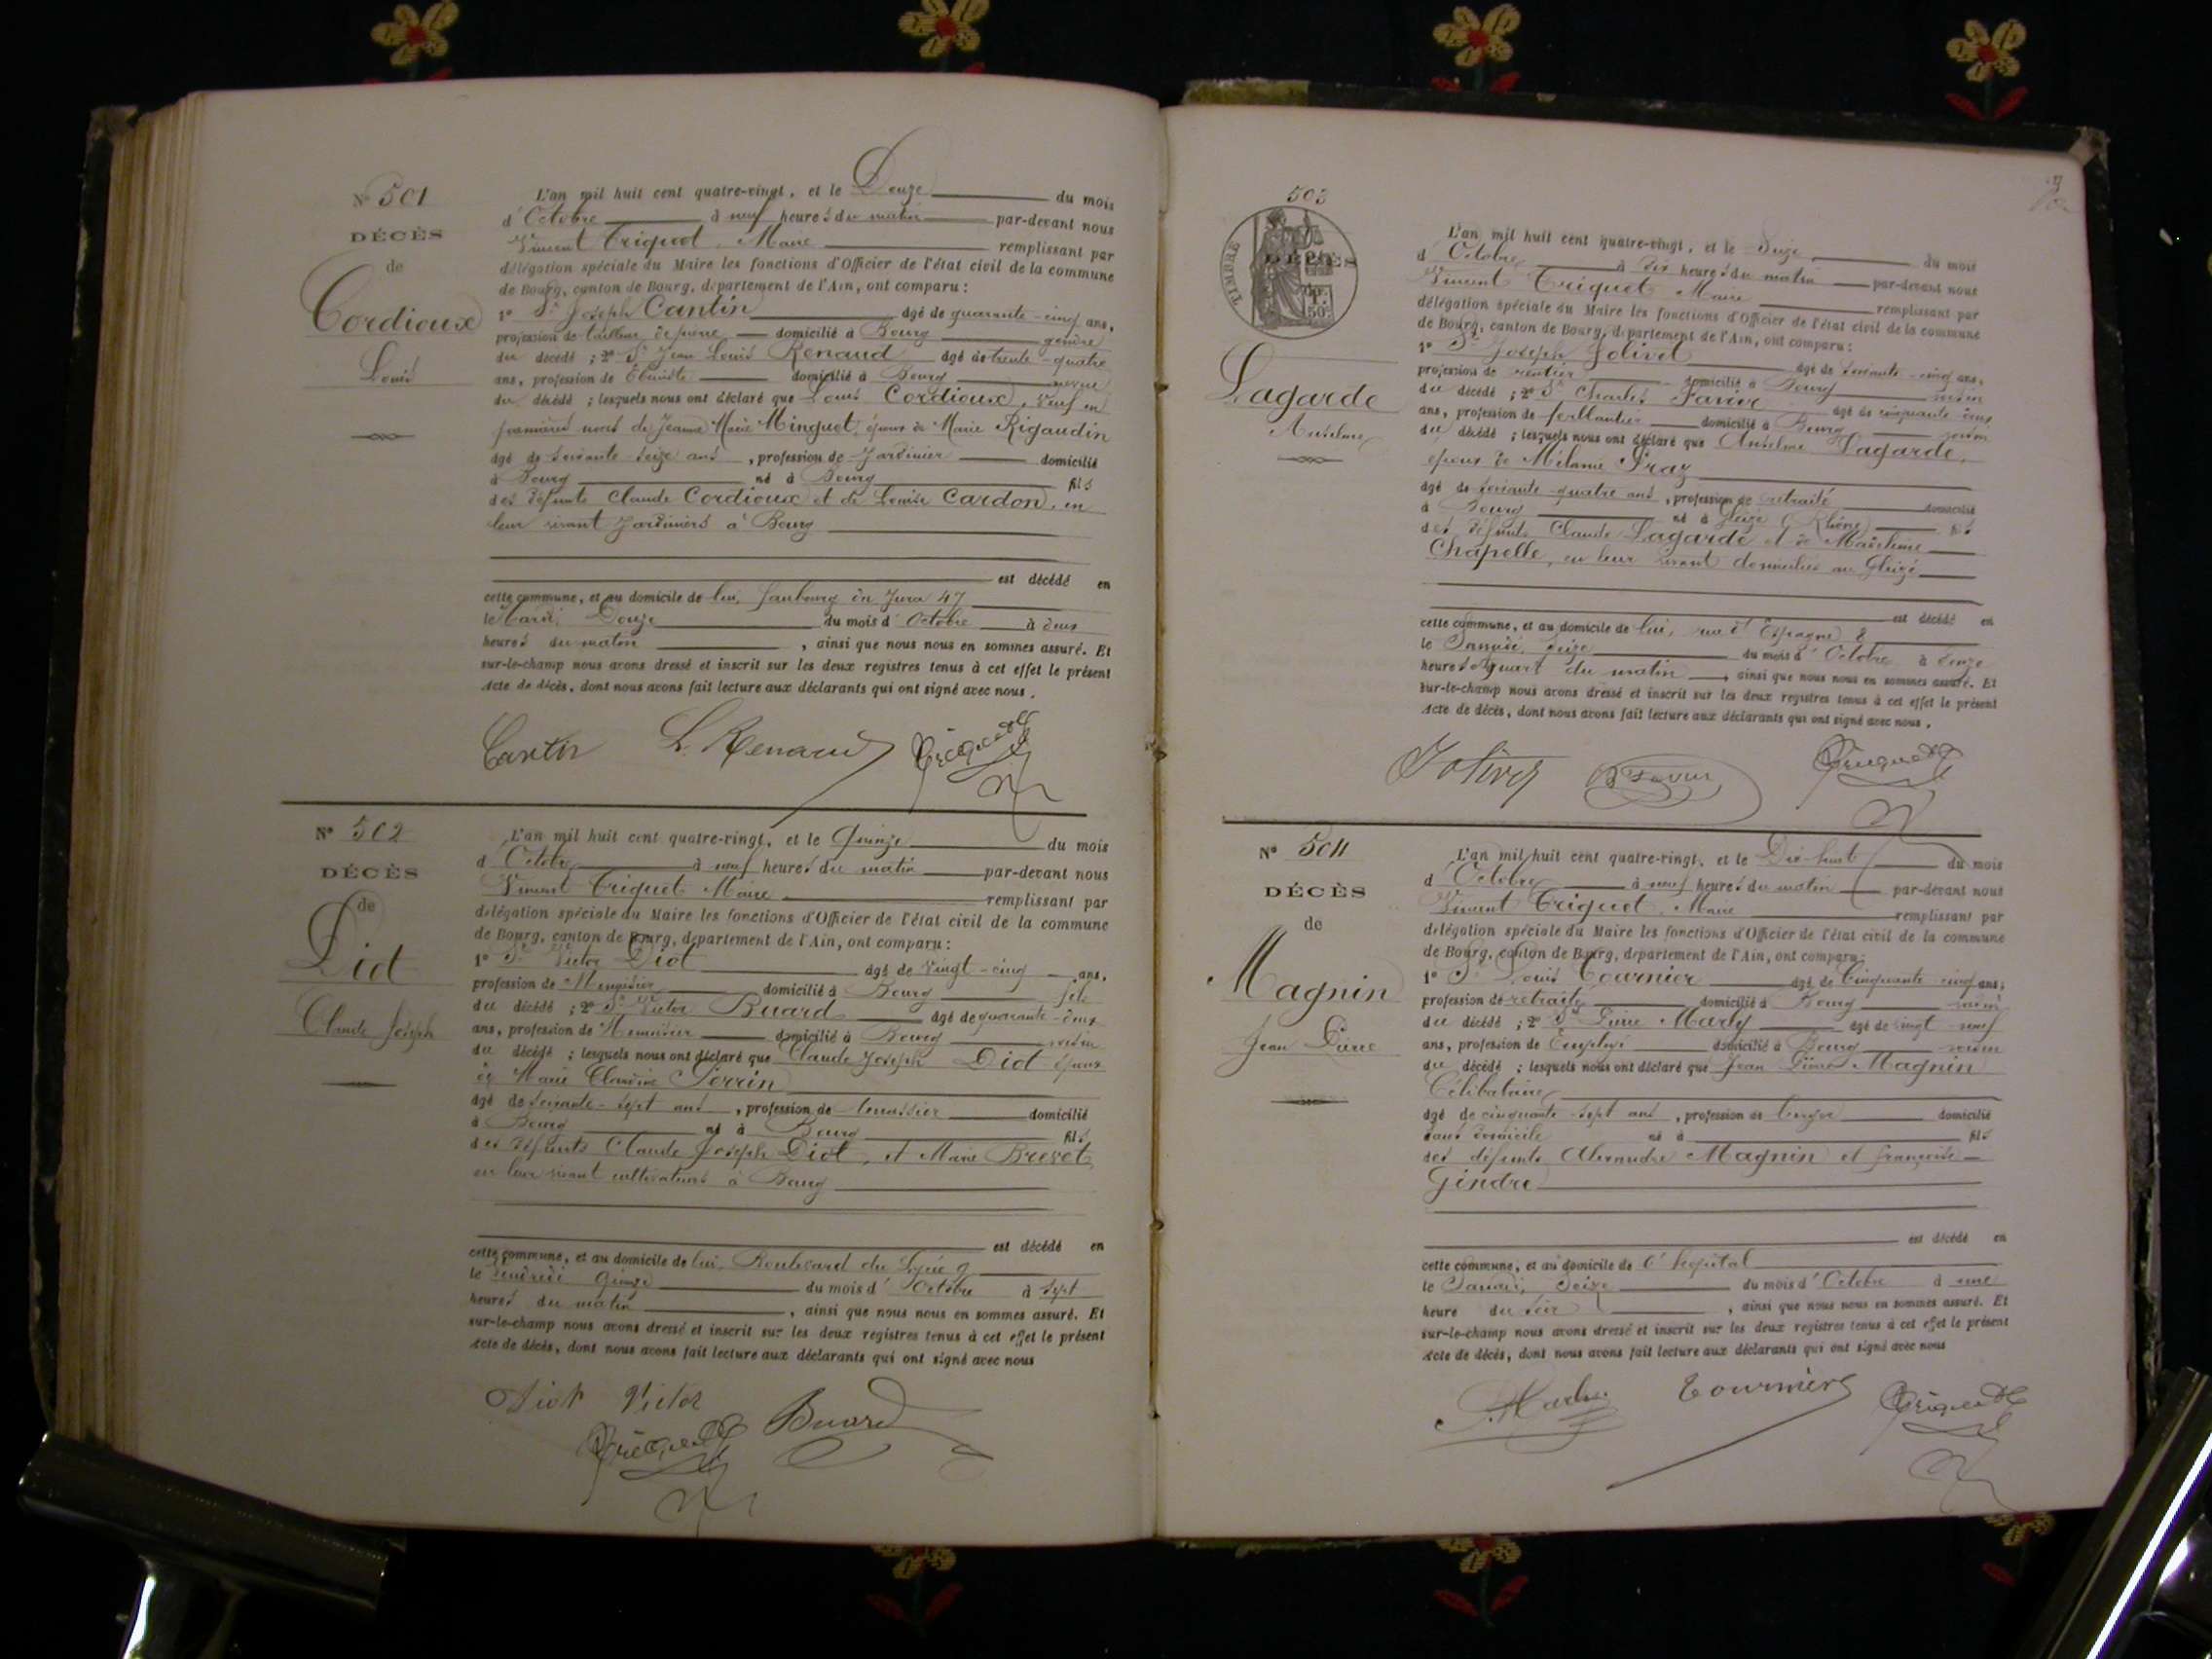 N° 501
DÉCÈS
de
Cordioux
Louis
L'an mil huit cent quatre-vingt, et le Douze du mois
d'Octobre à neuf heures du matin par-devant nous
Vincent Triquet, Maire remplissant par
délégation spéciale du Maire les fonctions d'Officier de l'état civil de la commune
de Bourg, canton de Bourg, département de l'Ain, ont comparu :
1° Sr Joseph Cantin âgé de quarante-cinq ans,
profession de tailleur de pierre domicilié à Bourg gendre
du décédé ; 2° Sr Jean Louis Renaud âgé de trente-quatre
ans, profession de Ébéniste domicilié à Bourg neveu
du décédé ; lesquels nous ont déclaré que Louis Cordioux, veuf en
premières noces de Jeanne Marie Minguet, époux de Marie Rigaudin
âgé de soixante-seize ans, profession de Jardinier domicilié
à Bourg né à Bourg fils
des défunts Claude Cordioux et de Louise Cardon, en
leur vivant Jardiniers à Bourg
est décédé en
cette commune, et au domicile de lui, faubourg du Jura 47
le Mardi Douze du mois d'Octobre à deux
heures du matin, ainsi que nous nous en sommes assuré. Et
sur-le-champ nous avons dressé et inscrit sur les deux registres tenus à cet effet le présent
Acte de décès, dont nous avons fait lecture aux déclarants qui ont signé avec nous.
Cantin L. Renaud Triquet
N° 502
DÉCÈS
de
Diot
Claude Joseph
L'an mil huit cent quatre-vingt, et le Quinze du mois
d'Octobre à neuf heures du matin par-devant nous
Vincent Triquet Maire remplissant par
délégation spéciale du Maire les fonctions d'Officier de l'état civil de la commune
de Bourg, canton de Bourg, département de l'Ain, ont comparu :
1° Sr Victor Diot âgé de vingt-cinq ans,
profession de Menuisier domicilié à Bourg fils
du décédé ; 2° Sr Victor Buard âgé de quarante-deux
ans, profession de Menuisier domicilié à Bourg voisin
du décédé ; lesquels nous ont déclaré que Claude Joseph Diot époux
de Marie Claudine Perrin
âgé de soixante-sept ans, profession de domicilié
à Bourg né à Bourg fils
des défunts Claude Joseph Diot, et Marie Brevet,
en leur vivant cultivateurs à Bourg
est décédé en
cette commune, et au domicile de lui, Boulevard du Lycée 9
le Vendredi Quinze du mois d'Octobre à sept
heures du matin, ainsi que nous nous en sommes assuré. Et
sur-le-champ nous avons dressé et inscrit sur les deux registres tenus à cet effet le présent
Acte de décès, dont nous avons fait lecture aux déclarants qui ont signé avec nous
Diot Victor Buard
Triquet
503
TIMBRE
DÉCÈS
Lagarde
Anselme
L'an mil huit cent quatre-vingt, et le Seize du mois
d'Octobre à dix heures du matin par-devant nous
Vincent Triquet Maire remplissant par
délégation spéciale du Maire les fonctions d'Officier de l'état civil de la commune
de Bourg, canton de Bourg, département de l'Ain, ont comparu :
1° Sr Joseph Jolivet âgé de soixante-cinq ans,
profession de rentier domicilié à Bourg voisin
du décédé ; 2° Sr Charles Favre âgé de cinquante-deux
ans, profession de ferblantier domicilié à Bourg voisin
du décédé ; lesquels nous ont déclaré que Anselme Lagarde,
époux de Mélanie Pray
âgé de soixante-quatre ans, profession de retraité domicilié
à Bourg né à Gleizé (Rhône) fils
des défunts Claude Lagarde et de
Chapelle, en leur vivant domiciliés au Gleizé
est décédé en
cette commune, et au domicile de lui, rue d'Espagne 8
le Samedi, seize du mois d'Octobre à
heures quart du matin, ainsi que nous nous en sommes assuré. Et
sur-le-champ nous avons dressé et inscrit sur les deux registres tenus à cet effet le présent
Acte de décès, dont nous avons fait lecture aux déclarants qui ont signé avec nous.
Jolivet Favre Triquet
N° 504
DÉCÈS
de
Magnin
Jean Pierre
L'an mil huit cent quatre-vingt, et le Dix-huit du mois
d'Octobre à neuf heures du matin par-devant nous
Vincent Triquet, Maire remplissant par
délégation spéciale du Maire les fonctions d'Officier de l'état civil de la commune
de Bourg, canton de Bourg, département de l'Ain, ont comparu :
1° Sr Louis Tournier âgé de Cinquante-cinq ans,
profession de retraité domicilié à Bourg voisin
du décédé ; 2° Sr Pierre Marly âgé de vingt-neuf
ans, profession de Employé domicilié à Bourg voisin
du décédé ; lesquels nous ont déclaré que Jean Pierre Magnin
Célibataire
âgé de cinquante-sept ans, profession de domicilié
sans domicile né à fils
des défunts Alexandre Magnin et Françoise
Gindre
est décédé en
cette commune, et au domicile de l'hopital
le Samedi, Seize du mois d'Octobre à une
heure du soir, ainsi que nous nous en sommes assuré. Et
sur-le-champ nous avons dressé et inscrit sur les deux registres tenus à cet effet le présent
Acte de décès, dont nous avons fait lecture aux déclarants qui ont signé avec nous
P. Marly Tournier Triquet